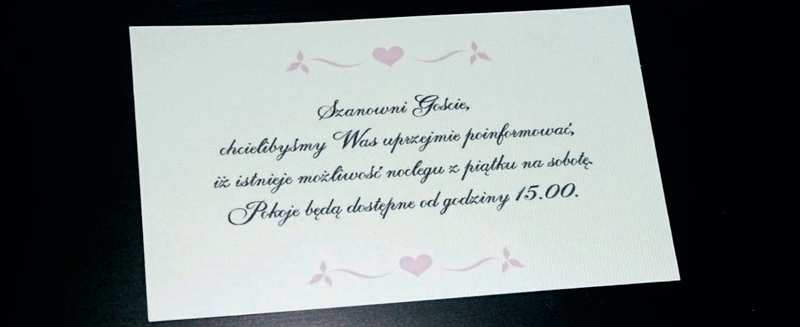 Szanowni Goście,
chcielibyśmy Was uprzejmie poinformować,
iż istnieje możliwość noclegu z piątku na sobotę.
Pokoje będą dostępne od godziny 15.00.